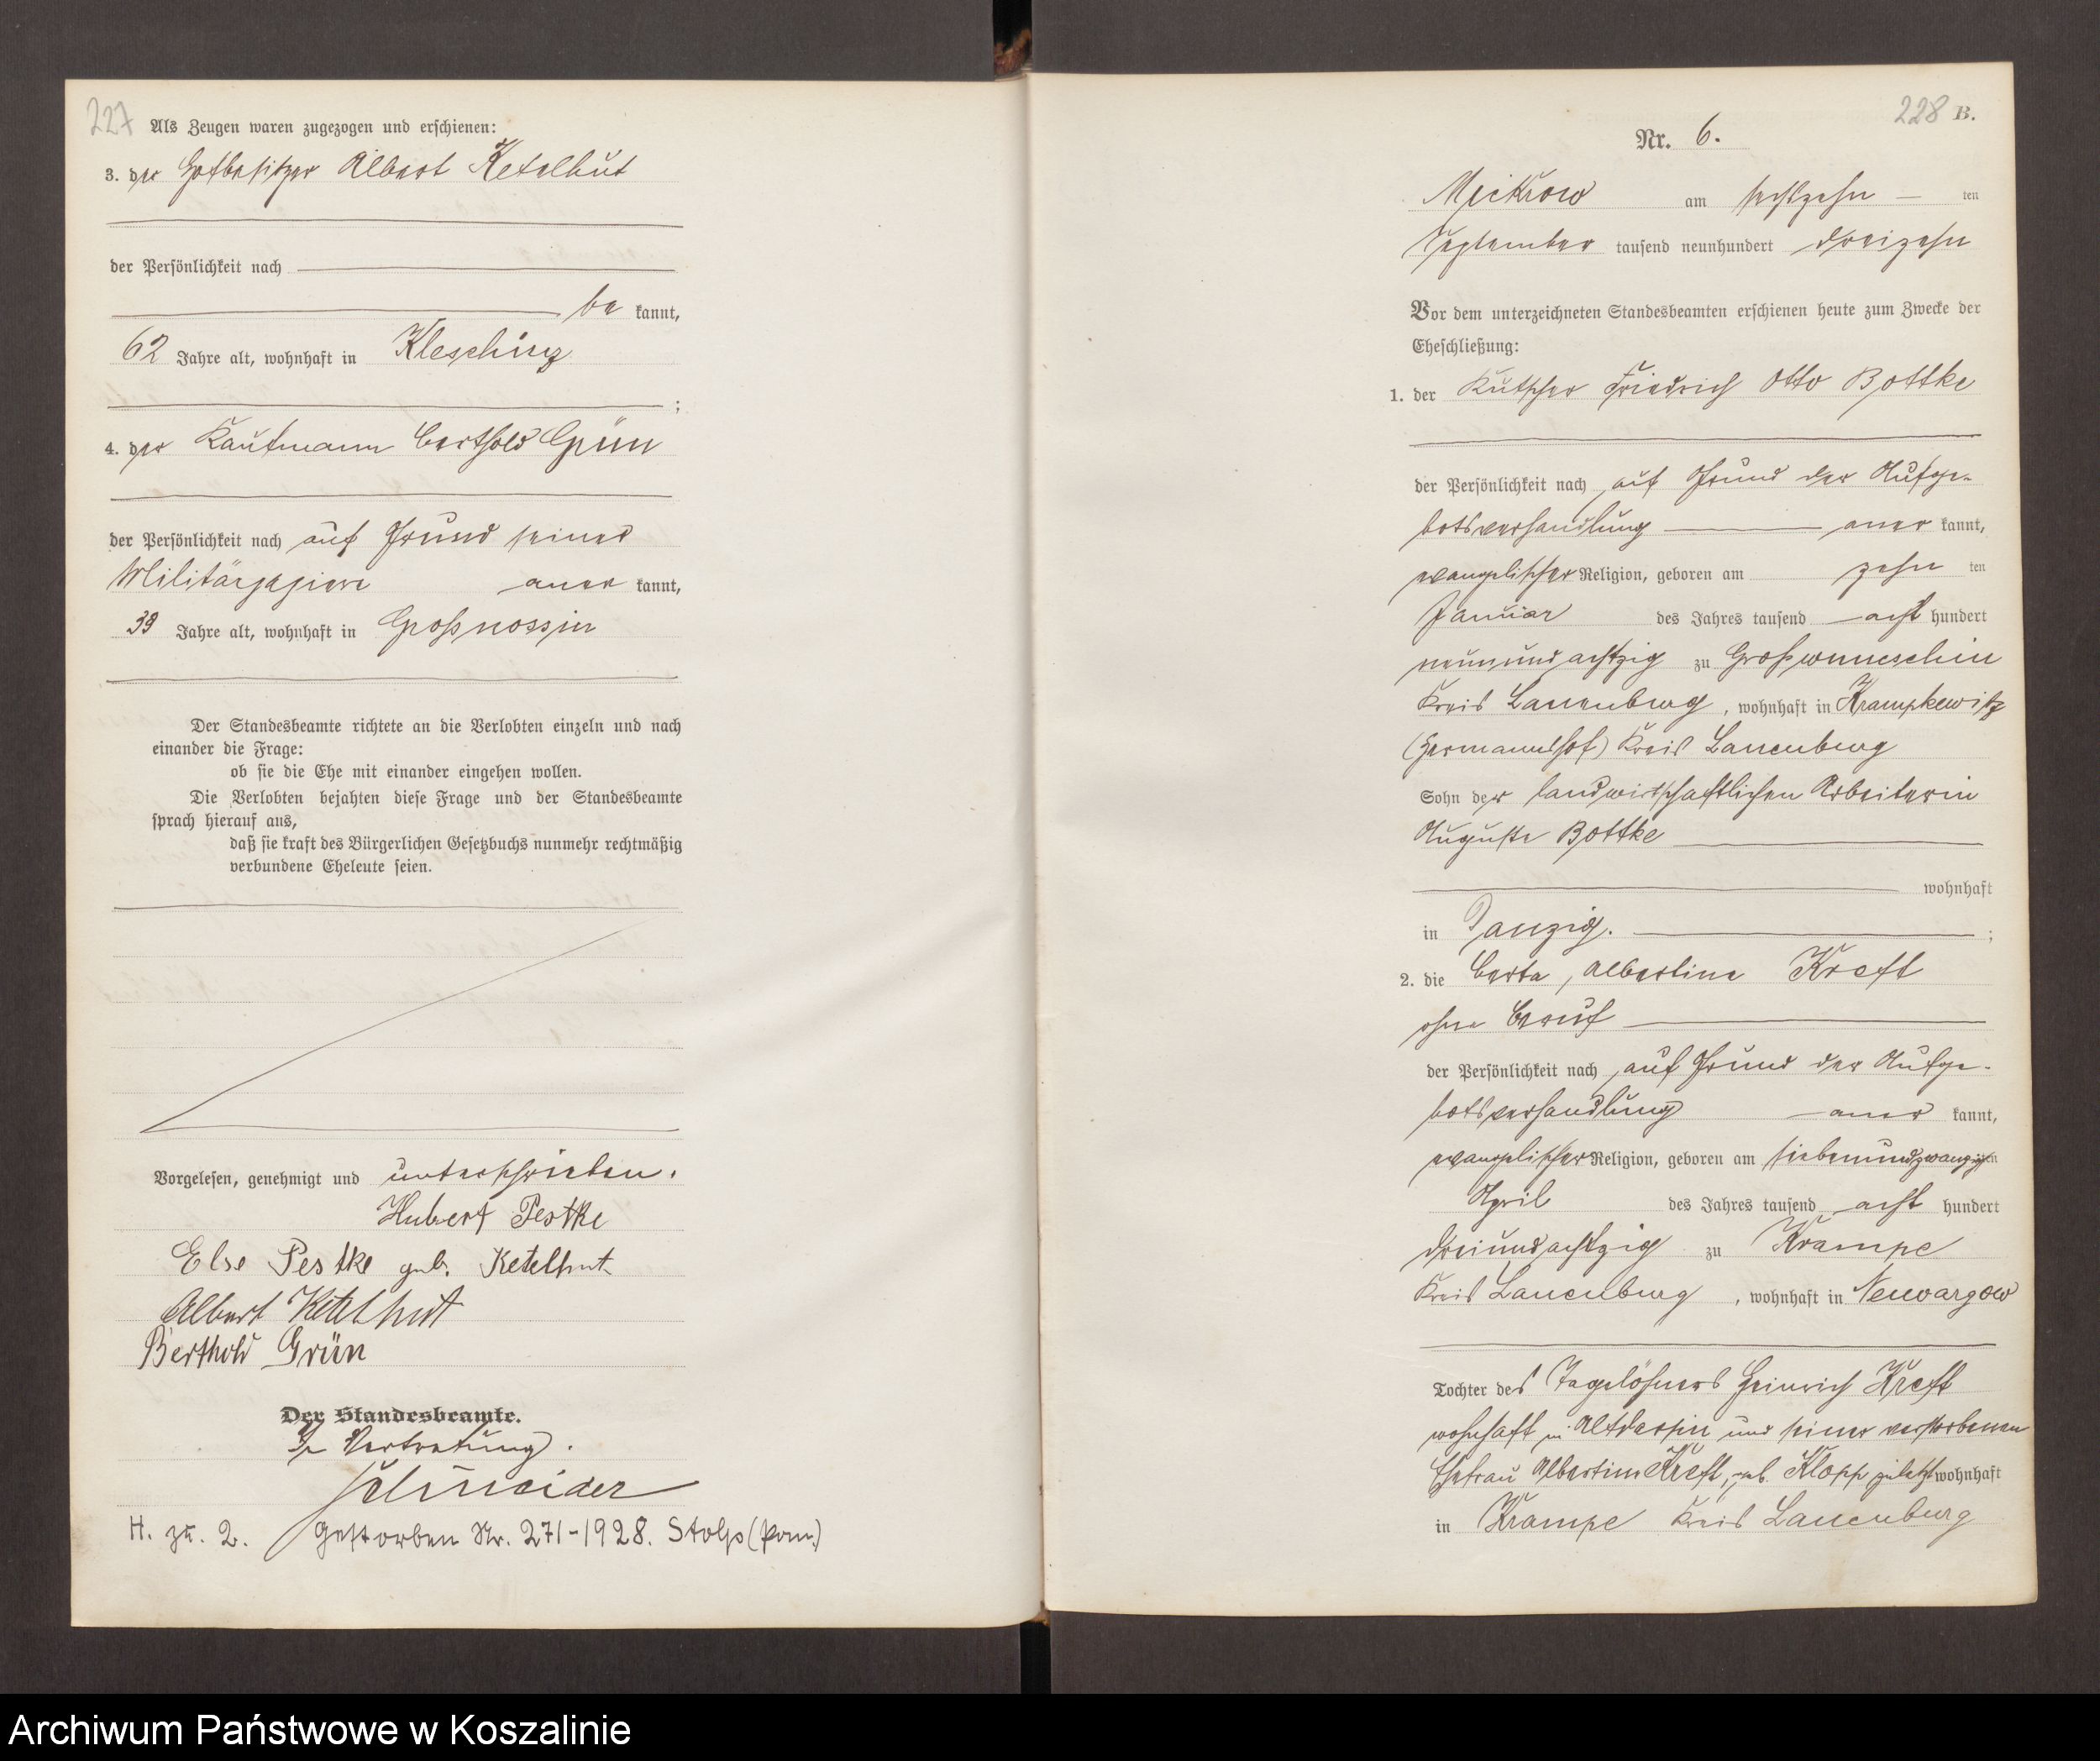 227
Als Zeugen waren zugezogen und erschienen:
3. der Hofbesitzer Albert Ketelhut
der Persönlichkeit nach
be kannt,
62 Jahre alt, wohnhaft in Kleschinz
;
4. der Kaufmann Berthold Grün
der Persönlichkeit nach auf Grund seines
Militärpapiere aner kannt,
39 Jahre alt, wohnhaft in Großnossin
Der Standesbeamte richtete an die Verlobten einzeln und nach
einander die Frage:
ob sie die Ehe mit einander eingehen wollen.
Die Verlobten bejahten diese Frage und der Standesbeamte
sprach hierauf aus,
daß sie kraft des Bürgerlichen Gesetzbuchs nunmehr rechtmäßig
verbundene Eheleute seien.
Vorgelesen, genehmigt und unterschrieben.
Hubert Pestke
Else Pestke geb. Ketelhut
Albert Ketelhut
Berthold Grün
Der Standesbeamte.
In Vertretung.
Schneider
H. zu. 2. gestorben Nr. 271-1928. Stolp (Pom.)
228 B.
Nr. 6.
Mickrow am sechszehn ten
September tausend neunhundert dreizehn
Vor dem unterzeichneten Standesbeamten erschienen heute zum Zwecke der
Eheschließung:
1. der Kutscher Friedrich Otto Bottke
der Persönlichkeit nach auf Grund der Aufge-
botsverhandlung aner kannt,
evangelischer Religion, geboren am zehn ten
Januar des Jahres tausend acht hundert
neunundachtzig zu Großwunneschin
Kreis Lauenburg, wohnhaft in Krampkewitz
(Hermannshof) Kreis Lauenburg
Sohn der landwirtschaftlichen Arbeiterin
Auguste Bottke
wohnhaft
in Danzig. ;
2. die Berta, Albertine Kreft
ohne Beruf
der Persönlichkeit nach auf Grund der Aufge-
botsverhandlung aner kannt,
evangelischer Religion, geboren am siebenundzwanzigsten
April des Jahres tausend acht hundert
dreiundachtzig zu Krampe
Kreis Lauenburg, wohnhaft in Neuvargow
Tochter des Tagelöhners Heinrich Kreft
wohnhaft in und seiner verstorbenen
Ehefrau Albertine Kreft, geb. Klopp zuletzt wohnhaft
in Krampe Kreis Lauenburg
Archiwum Państwowe w Koszalinie